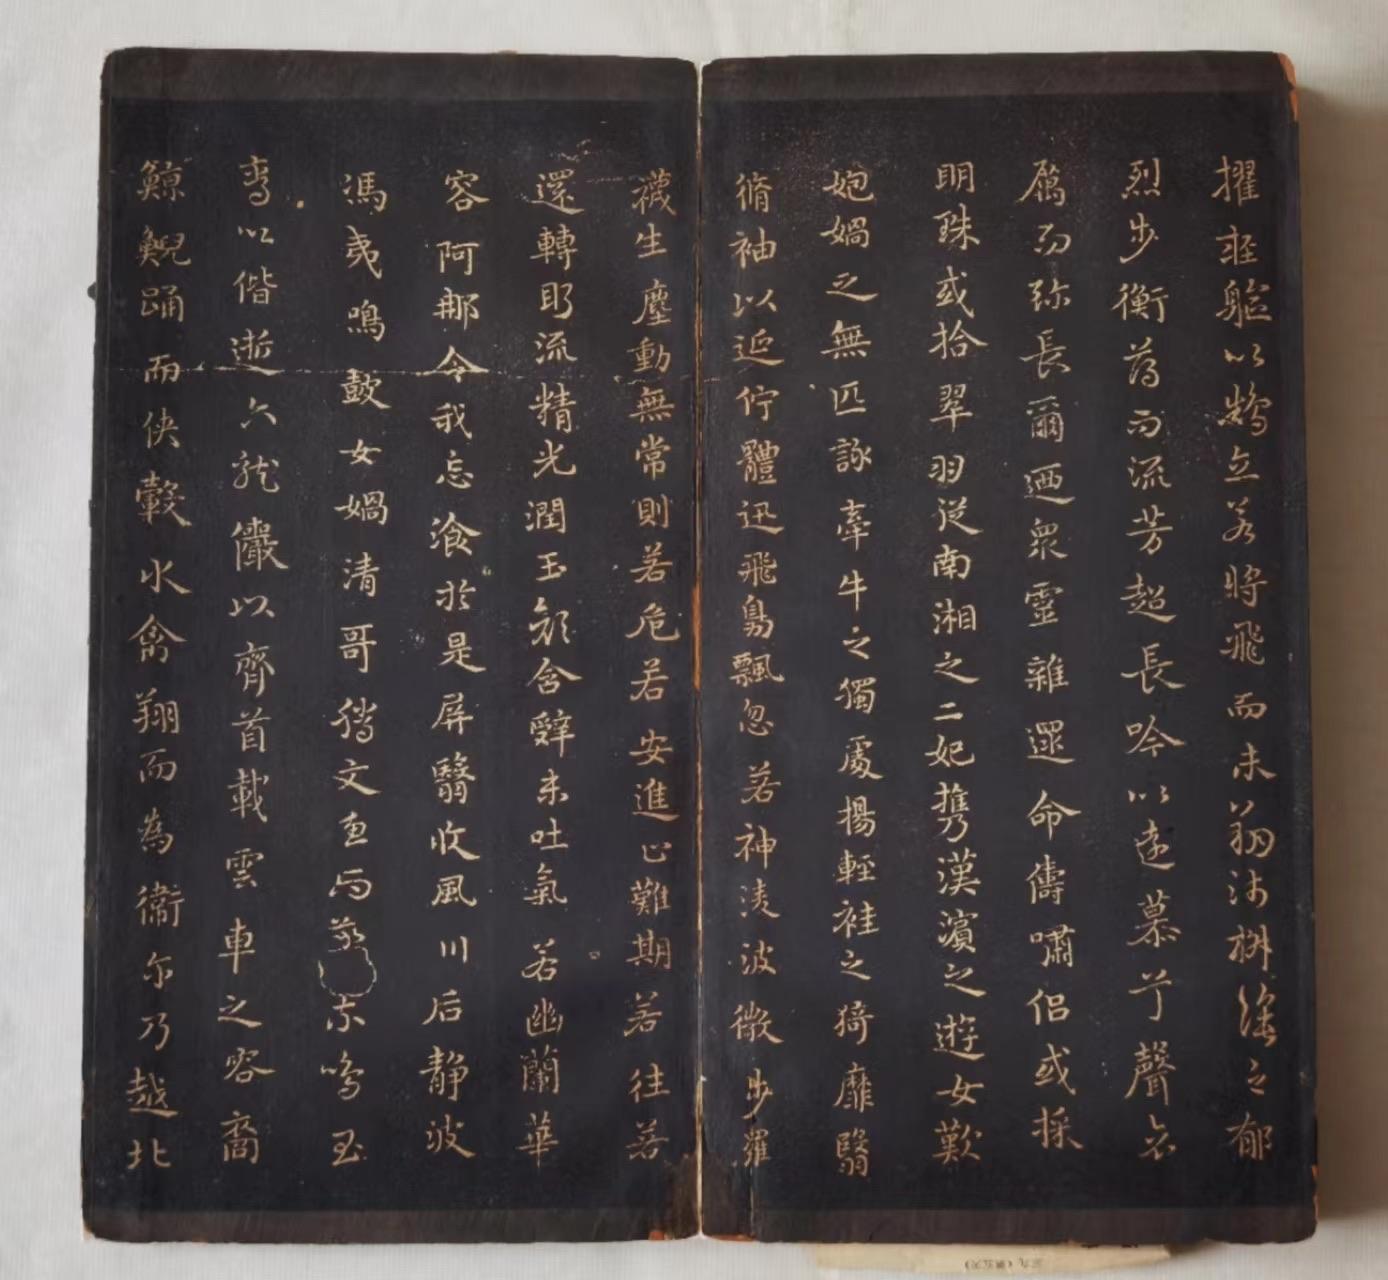 擢輕軀以鶴立若將飛而未翔踐椒塗之郁
烈步衡薄而流芳超長吟以遠慕兮聲哀
厲而弥長爾迺衆靈雜遝命儔嘯侶或採
明珠或拾翠羽從南湘之二妃攜漢濱之遊女歎
㚿媧之無匹詠牽牛之獨處揚輕袿之猗靡翳
脩袖以延佇體迅飛鳧飄忽若神淩波微步羅
襪生塵動無常則若危若安進止難期若往若
還轉眄流精光潤玉顏含辭未吐氣若幽蘭華
容阿那令我忘飡於是屏翳收風川后静波
馮夷鳴鼓女媧清哥騰文魚而警乘鳴玉
鸞以偕逝六龍儼以齊首載雲車之容裔
鯨鯢踊而俠轂水禽翔而為衛尓乃越北